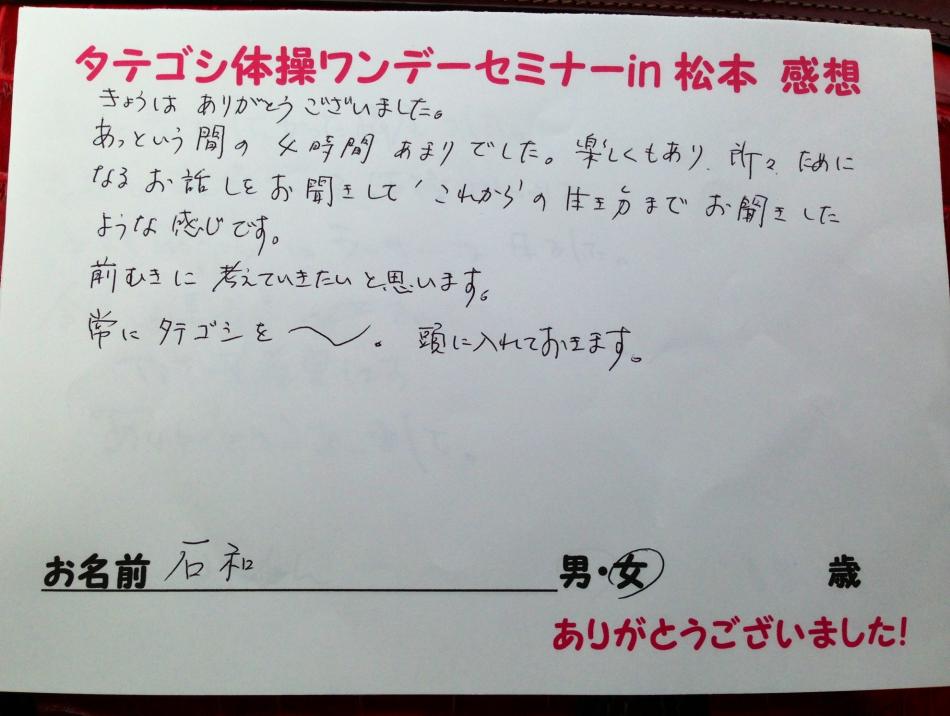 タテゴシ体操ワンデーセミナーin 松本 感想
きょうは ありがとうございました。
あっという間の 4時間 あまりでした。楽しくもあり、所々 ために
なる お話しを お聞きして 'これから'の 生き方まで お聞きした
ような感じです。
前むきに 考えていきたいと思います。
常に タテゴシを 〜。 頭に入れておきます。
お名前 石和 男・女 歳
ありがとうございました!